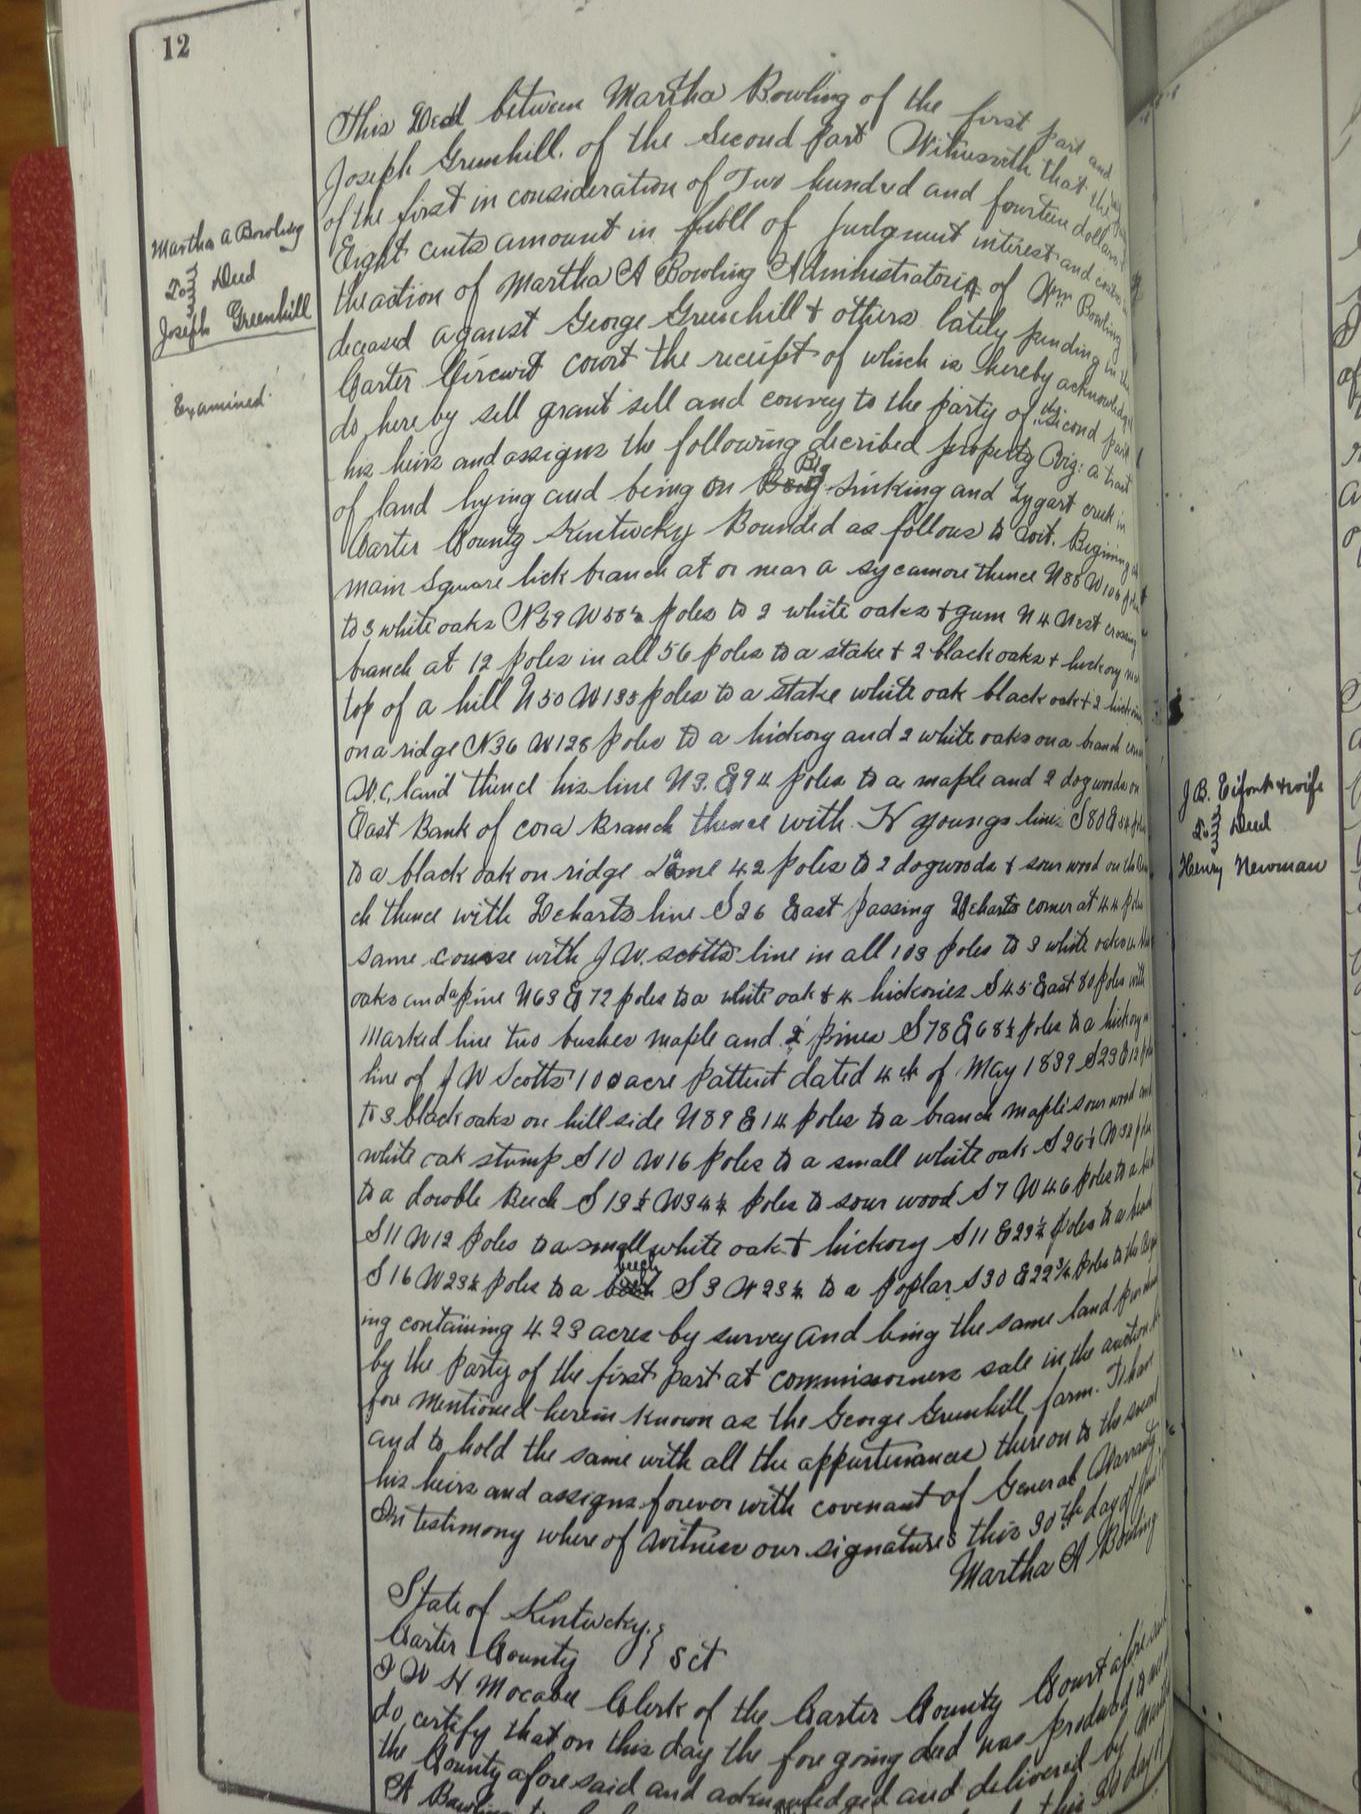 12
Martha A Bowling
To } Deed
Joseph Greenhill
Examined
This Deed between Martha Bowling of the first part and
Joseph Greenhill, of the Second part Witnesseth that the
of the first in consideration of Two hundred and fourteen dollars
Eight cents amount in full of Judgment interest and costs
the action of Martha A Bowling Administratorix of Wm Bowling
deceased against George Greenhill & others lately pending in the
Carter Circuit court the receipt of which is hereby acknowledge
do here by sell grant sell and convey to the party of the second part
his heirs and assigns the following decribed property Viz: a tract
of land lying and being on Big Sinking and Tygart creek in
Carter County Kentucky Bounded as follows to wit. Begining
main Square lick branch at or near a sycamore thence N 88 W 106
to 3 white oaks N 59 W 58½ poles to 2 white oaks & gum N 4 West crossing
branch at 12 poles in all 56 poles to a stake & 2 black oaks & hickory
top of a hill N 50 W 135 poles to a stake white oak black oak & 2
on a ridge N 36 W 128 poles to a hickory and 2 white oaks on a branch
W.C. land thence his line N 3. E 94 poles to a maple and 2 dogwoods on
East Bank of cora Branch thence with youngs line S 80 E
to a black oak on ridge same 42 poles to 2 dogwoods & sour wood on the
ch thence with Deharts line S 26 East passing Deharts corner at 44
same course with J. W. scotts line in all 103 poles to 3 white oaks
oaks and a pine N 63 E 72 poles to a white oak & 4 hickories S 45 East 80 poles with
Marked line two bushes maple and 2 pines S 78 E 68½ poles to a hickory
line of J W Scotts 100 acre pattent dated 4th of May 1839 S 23 E
to 3 black oaks on hill side N 89 E 14 poles to a branch maple sour wood
white oak stump S 10 W 16 poles to a small white oak S 26½ W
to a dowble Beech S 13½ W 34½ poles to sour wood S 7 W 46 poles to a
S 11 W 12 poles to a small white oak & hickory S 11 E 29½ poles to a
S 16 W 23½ poles to a beech S 3 W 23½ to a poplar S 30 E 22¾ poles to the
ing containing 423 acres by survey and being the same land
by the Party of the first part at commissioners sale in the action
fore mentioned herein known as the George Greenhill farm. To have
and to hold the same with all the appurtenances thereon to the second
his heirs and assigns forever with covenant of General Warranty
In testimony where of witness our signatures this 30th day of
Martha A Bowling
State of Kentucky }
Carter County } Sct
I W H. Mocabee Clerk of the Carter County Court
do certify that on this day the fore going deed was produced to
the County afore said and acknowledged and delivered by
A Bowling this 30 day
J. B. & wife
To } Deed
Henry Newman